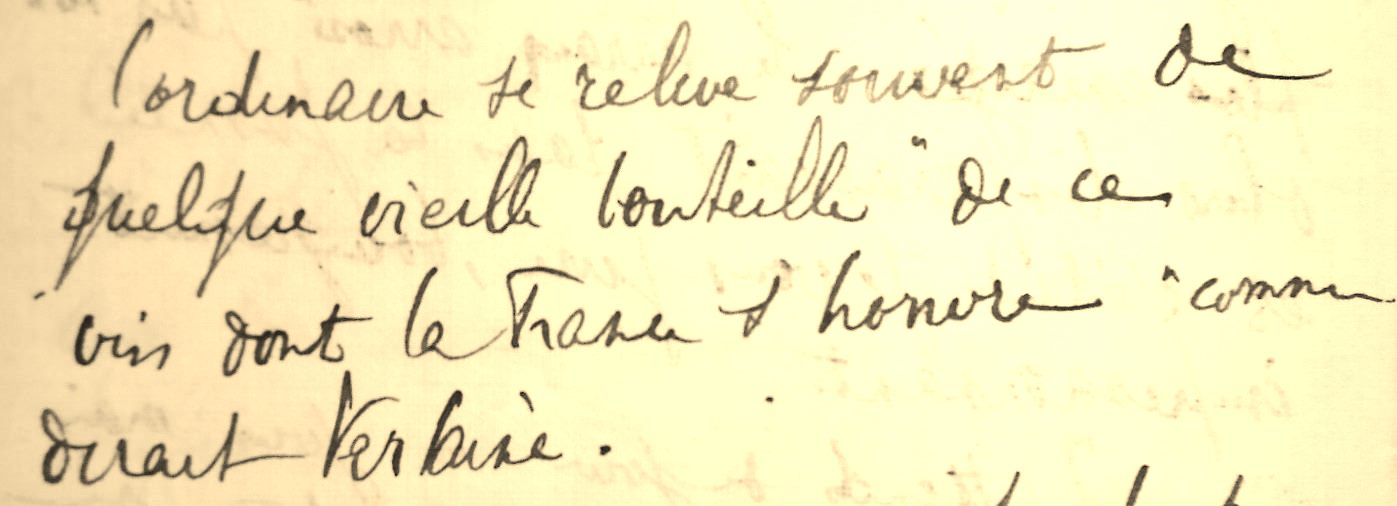 l'ordinaire se relève souvent de
quelque vieille bouteille "de ces
vins dont la France s'honore" comme
dirait Verlaine.